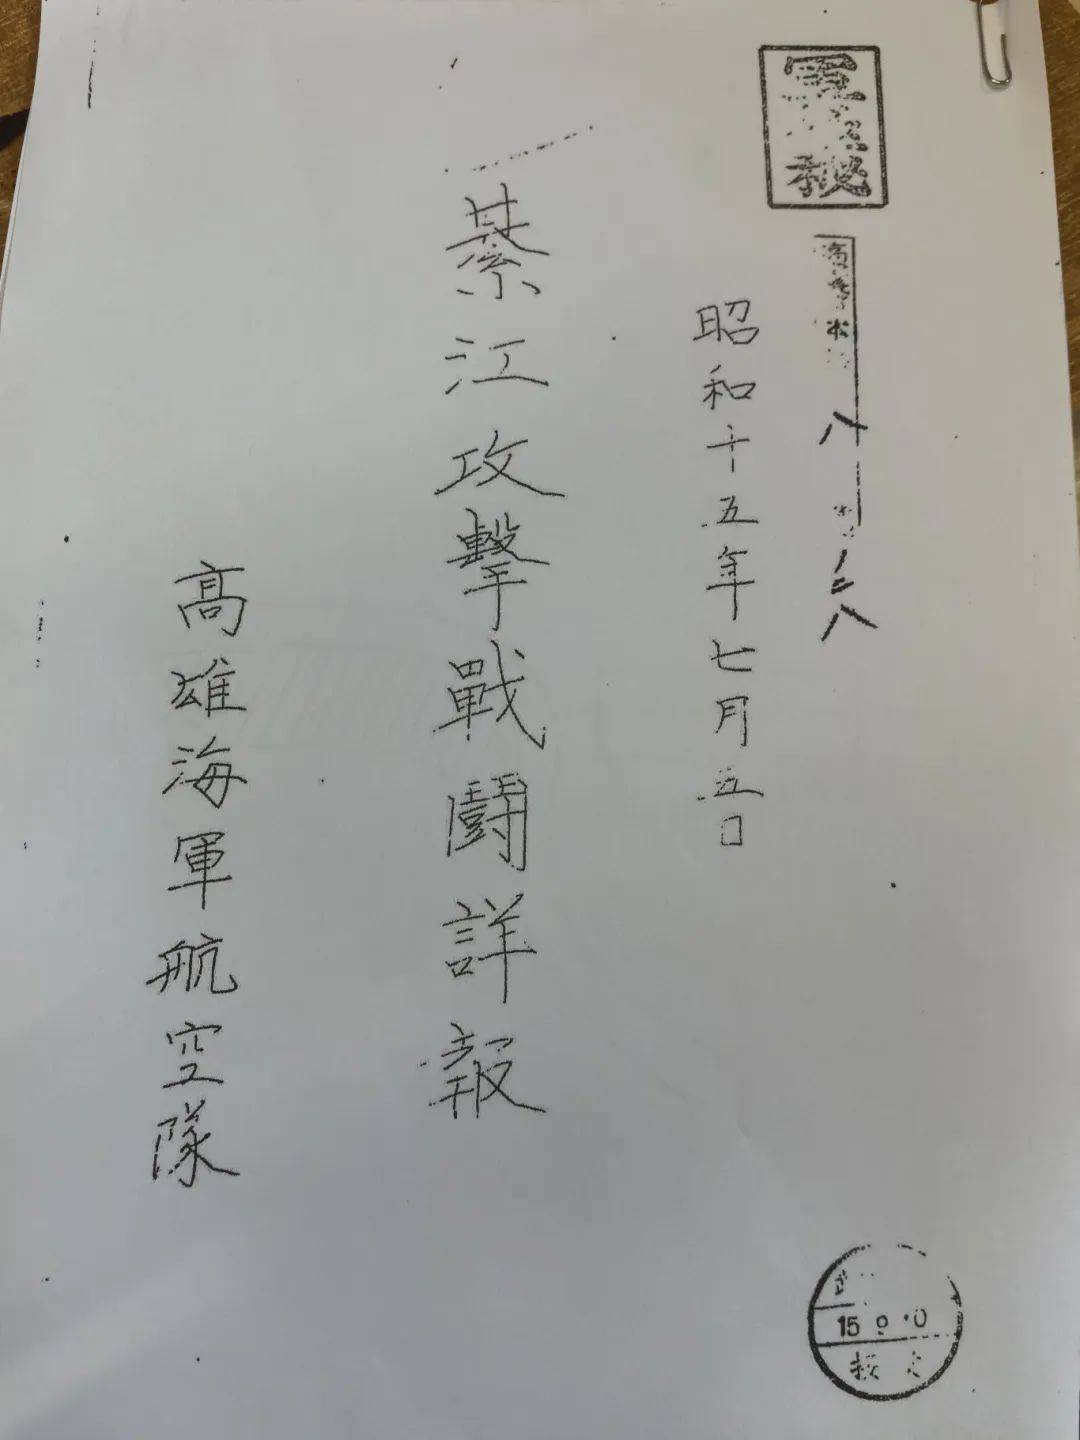 軍極秘
八
八
昭和十五年七月五日
綦江攻擊戰鬪詳報
高雄海軍航空隊
15